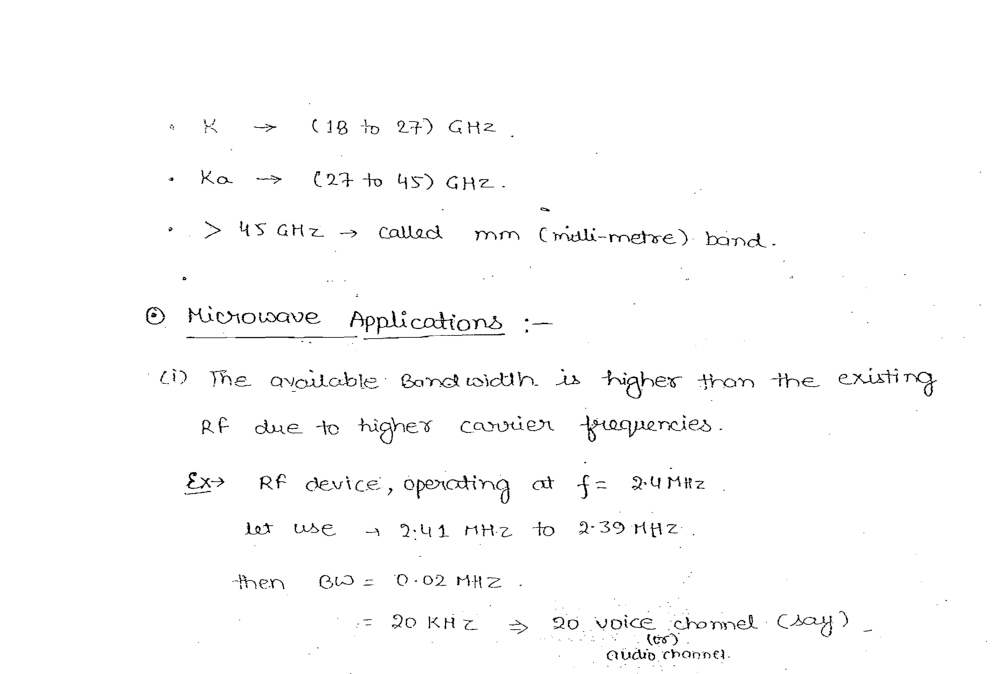 • K → (18 to 27) GHz.
• Ka → (27 to 45) GHz.
• > 45 GHz → called mm (milli-metre) band.
⊙ Microwave Applications :-
(i) The available Bandwidth is higher than the existing
RF due to higher carrier frequencies.
Ex→ RF device, operating at f = 2.4 MHz.
let use → 2.41 MHz to 2.39 MHz.
then BW = 0.02 MHz.
= 20 KHz ⇒ 20 voice channel (say)
(or)
audio channel.